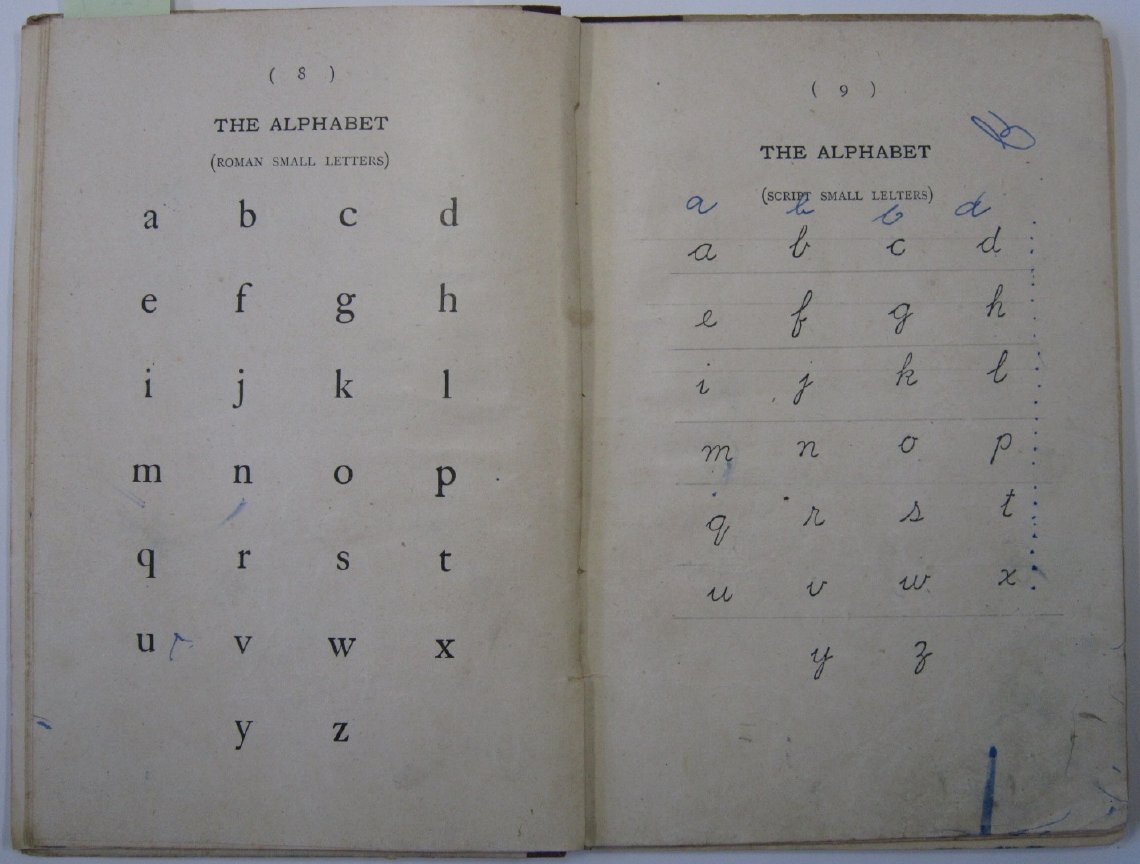 ( 8 )
THE ALPHABET
(ROMAN SMALL LETTERS)
a b c d
e f g h
i j k l
m n o p
q r s t
u v w x
y z
( 9 )
THE ALPHABET
(SCRIPT SMALL LELTERS)
a b b d
a b c d
e f g h
i j k l
m n o p
q r s t
u v w x
y z